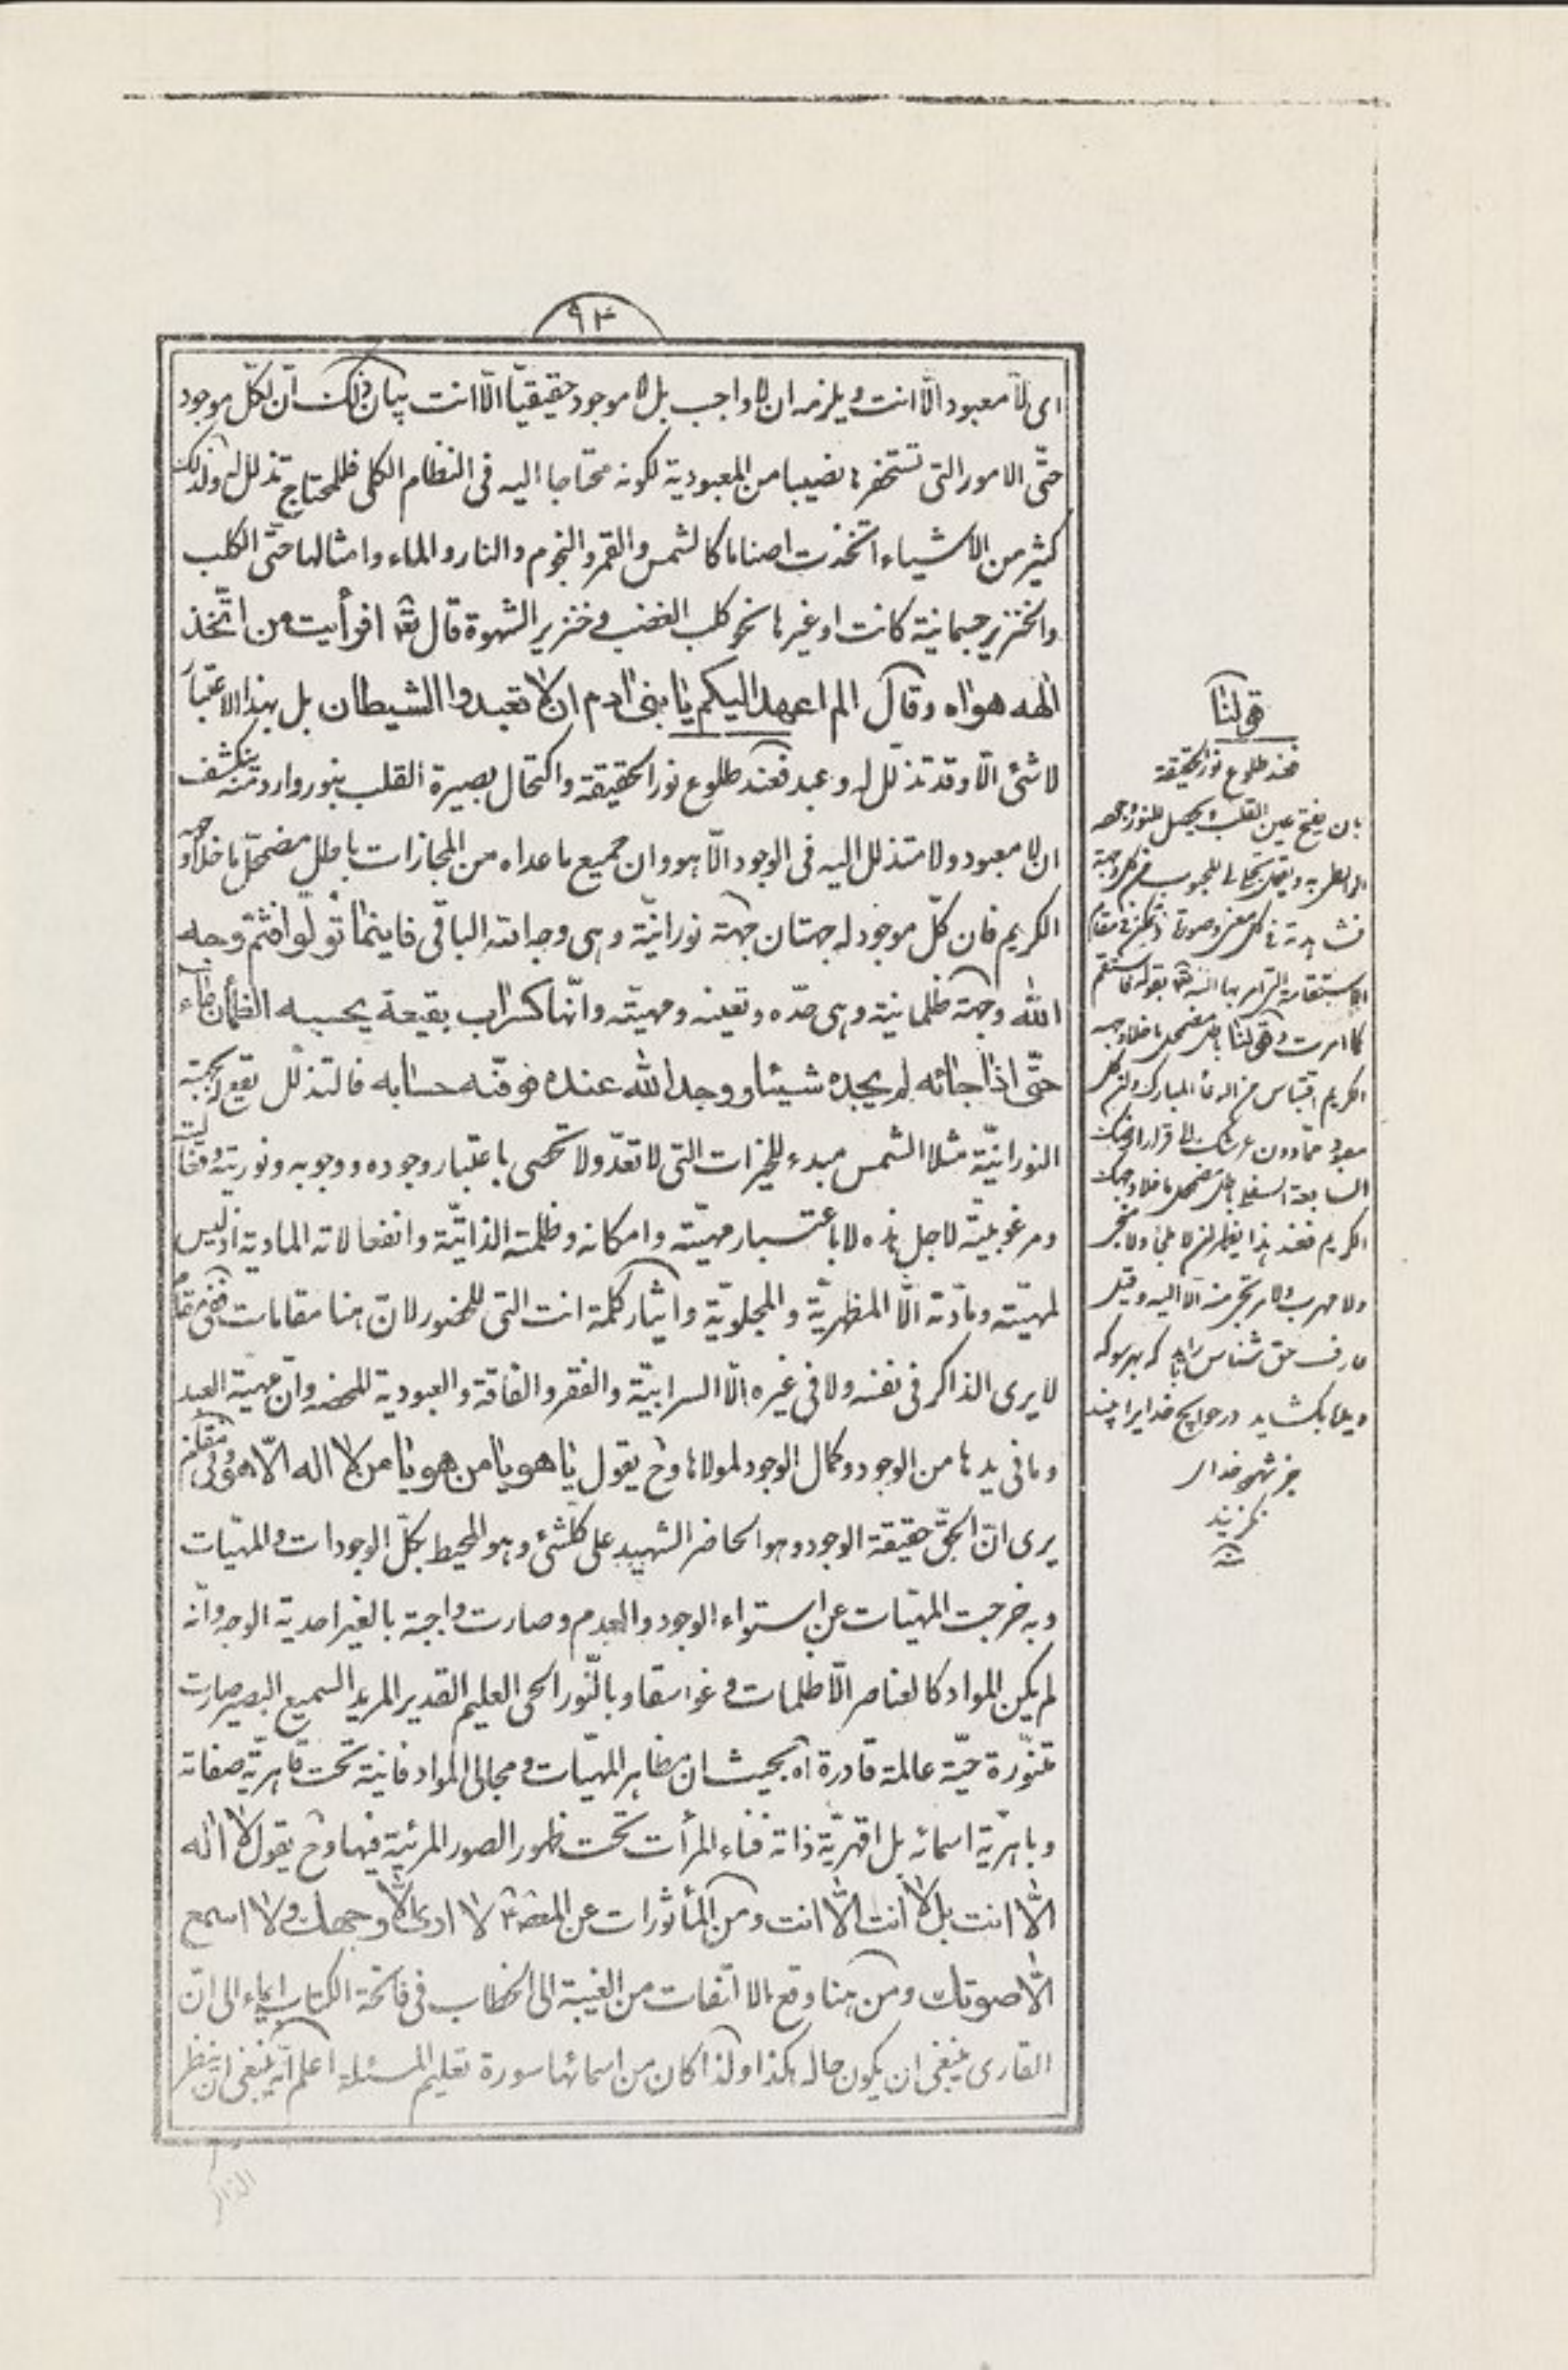 ٩٣
اى لا معبود الّا انت ويلزمه ان لا واجب بل لا موجود حقيقيّا الّا انت بيان ذلك انّ لكلّ موجود
حتّى الامور التى تستحقر نصيبا من المعبودية لكونه محتاجا اليه فى النظام الكلى فللمحتاج تذلل له ولذلك
كثير من الاشياء اتّخذت اصناما كالشمس والقمر والنجوم والنار والماء وامثالها حتّى الكلب
والخنزير جسمانية كانت او غيرها نحو كلب الغضب وخنزير الشهوة قال تع افرأيت من اتّخذ
الهه هواه وقال الم اعهد اليكم يا بنى ادم ان لا تعبدوا الشيطان بل بهذا الاعتبار
لا شئ الّا وقد تذلّل له وعبد فعند طلوع نور الحقيقة واكتحال بصيرة القلب بنور وارد منه ينكشف
ان لا معبود ولا متذلل اليه فى الوجود الّا هو وان جميع ما عداه من المجازات باطل مضمحلّ ما خلا وجهه
الكريم فان كلّ موجود له جهتان جهة نورانيّة وهى وجه الله الباقى فاينما تولّوا فثمّ وجه
الله وجهة ظلمانية وهى حدّه وتعينه ومهيّته وانّها كسراب بقيعة يحسبه الظمأن ماء
حتّى اذا جائه لم يجده شيئا ووجد الله عنده فوفّيه حسابه فالتذلل يقع لجهته
النورانيّة مثلا الشمس مبدء للخيرات التى لا تعدّ ولا تحصى باعتبار وجوده ووجوبه ونوريته
ومرغوبيّته لاجل هذه لا باعتبار مهيّته وامكانه وظلمته الذاتيّة وانفعالاته المادية اذ ليس
لمهيّته ومادّته الّا المظهريّة والمجلويّة وايثار كلمة انت التى للحضور لانّ هنا مقامات ففى مقام
لا يرى الذاكر فى نفسه ولا فى غيره الّا السرابيّة والفقر والفاقة والعبودية المحضه وانّ مهية العبد
وما فى يدها من الوجود وكمال الوجود لمولاها وح يقول يا هو يا من هو يا من لا اله الّا هو وفى مقام
يرى انّ الحقّ حقيقة الوجود وهو الحاضر الشهيد على كلّشئ وهو المحيط بكلّ الوجودات والمهيّات
وبه خرجت المهيّات عن استواء الوجود والعدم وصارت واجبة بالغير احدية الوجه وانّه
لم يكن المواد كالعناصر الّا ظلمات وغواسقا وبالنّور الحى العليم القدير المريد السميع البصير صارت
متنوّرة حيّة عالمة قادرة اه بحيث ان مظاهر المهيّات ومجالى المواد فانية تحت قاهريّة صفاته
وباهريّة اسمائه بل اقهريّة ذاته فناء المرأت تحت ظهور الصور المرئية فيها وح يقول لا اله
الّا انت بل لا انت الّا انت ومن المأثورات عن لا ارى الّا وجهك ولا اسمع
الّا صوتك ومن هنا وقع الالتفات من الغيبة الى الخطاب فى فاتحة الكتاب ايماء الى انّ
القارى ينبغى ان يكون حاله هكذا ولذا كان من اسمائها سورة تعليم المسئلة اعلم انّه ينبغى ان ينظر
الذاكر
قولنا
فعند طلوع نور الحقيقة
بان يفتح عين القلب ويحصل
فى كل وجهة
الاستقامة التى امر بها الله تع بقوله فاستقم
كما امرت وقولنا باطل مضمحل ما خلا وجهه
الكريم اقتباس من الدعاء المبارك
معبود ممّا دون عرشك الى قرار ارضك
السابعة السفلى باطل مضمحل ما خلا وجهك
الكريم فعند هذا
ولا مهرب
عارف حق شناس را بايد كه بهر سو كه
ديده بگشايد در حوايج خدايرا بيند
جز شهود خداى
نگزيند
منه